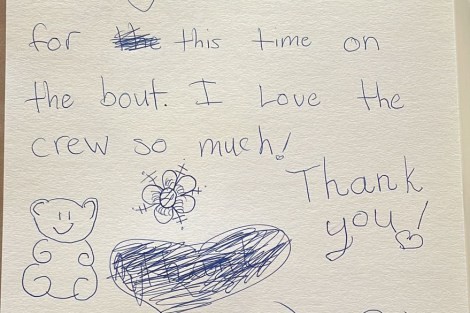 for this time on
the bout. I Love the
crew so much!
Thank
you!